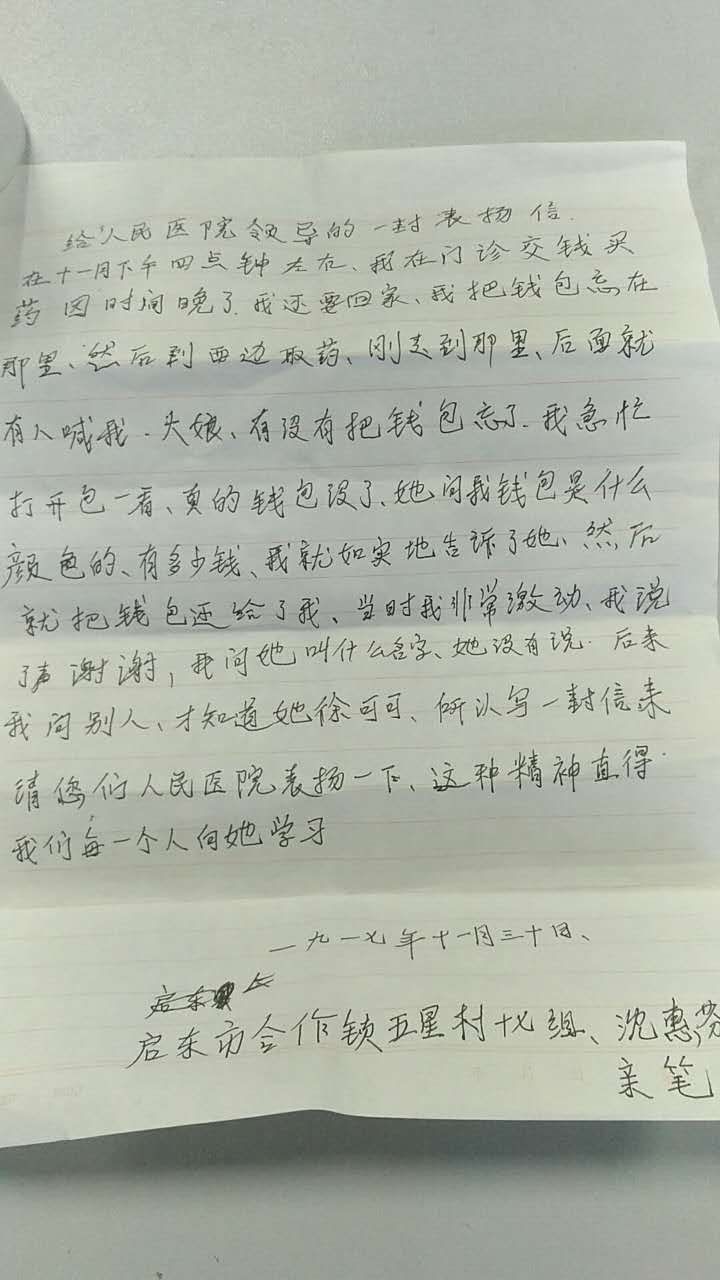 给人民医院领导的一封表扬信.
在十一月下午四点钟左右、我在门诊交钱买
药因时间晚了.我还要回家、我把钱包忘在
那里、然后到西边取药、刚走到那里、后面就
有人喊我.大娘、有没有把钱包忘了.我急忙
打开包一看、真的钱包没了、她问我钱包是什么
颜色的、有多少钱、我就如实地告诉了她、然后
就把钱包还给了我、当时我非常激动、我说
了声谢谢,我问她叫什么名字、她没有说.后来
我问别人、才知道她徐可可、所以写一封信来
请您们人民医院表扬一下、这种精神直得.
我们每一个人向她学习
一九一七年十一月三十日、
启东
启东市合作镇五星村十七组、沈惠芬
亲笔